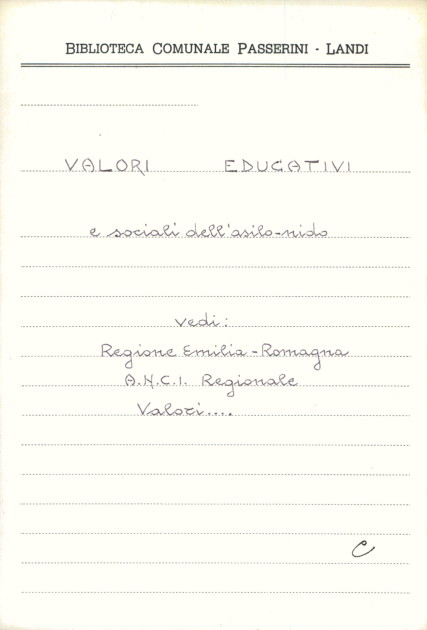 BIBLIOTECA COMUNALE PASSERINI - LANDI
VALORI EDUCATIVI
e sociali dell'asilo-nido
vedi:
Regione Emilia-Romagna
A.N.C.I. Regionale
Valori....
C